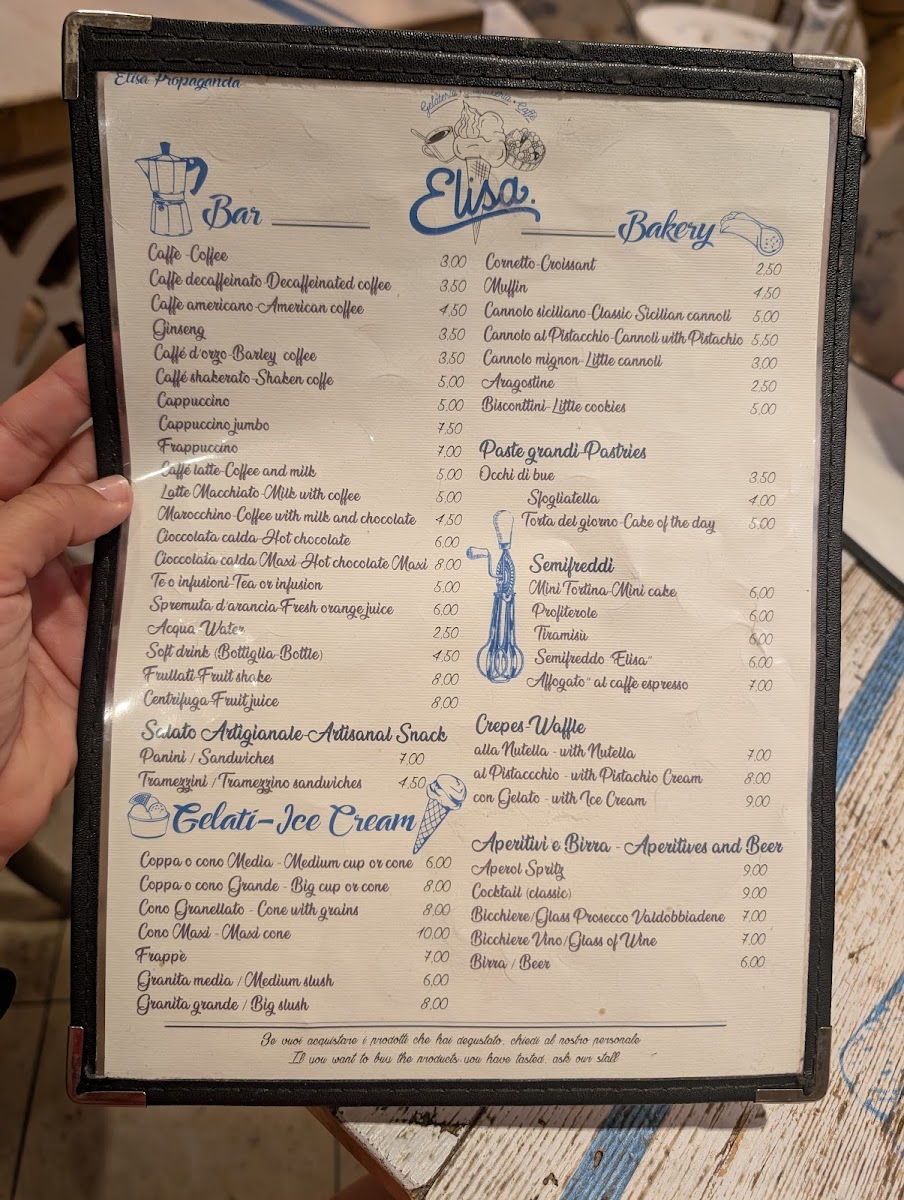 Elisa Propaganda
Gelateria • • Caffè
Elisa.
Bar
Caffè - Coffee 3,00
Caffè decaffeinato-Decaffeinated coffee 3,50
Caffè americano-American coffee 4,50
Ginseng 3,50
Caffé d'orzo-Barley coffee 3,50
Caffé shakerato-Shaken coffe 5,00
Cappuccino 5,00
Cappuccino jumbo 7,50
Frappuccino 7,00
Caffé latte-Coffee and milk 5,00
Latte Macchiato-Milk with coffee 5,00
Marocchino-Coffee with milk and chocolate 4,50
Cioccolata calda-Hot chocolate 6,00
Cioccolata calda Maxi-Hot chocolate Maxi 8,00
Te o infusioni-Tea or infusion 5,00
Spremuta d'arancia-Fresh orange juice 6,00
Acqua-Water 2,50
Soft drink (Bottiglia-Bottle) 4,50
Frullati-Fruit shake 8,00
Centrifuga-Fruit juice 8,00
Salato Artigianale-Artisanal Snack
Panini / Sandwiches 7,00
Tramezzini / Tramezzino sandwiches 4,50
Gelati-Ice Cream
Coppa o cono Media - Medium cup or cone 6,00
Coppa o cono Grande - Big cup or cone 8,00
Cono Granellato - Cone with grains 8,00
Cono Maxi - Maxi cone 10,00
Frappè 7,00
Granita media / Medium slush 6,00
Granita grande / Big slush 8,00
Bakery
Cornetto-Croissant 2,50
Muffin 4,50
Cannolo siciliano-Classic Sicilian cannoli 5,00
Cannolo al Pistacchio-Cannoli with Pistachio 5,50
Cannolo mignon-Little cannoli 3,00
Aragostine 2,50
Bisconttini-Little cookies 5,00
Paste grandi-Pastries
Occhi di bue 3,50
Sfogliatella 4,00
Torta del giorno-Cake of the day 5,00
Semifreddi
Mini Tortina-Mini cake 6,00
Profiterole 6,00
Tiramisù 6,00
Semifreddo "Elisa" 6,00
Affogato" al caffè espresso 7,00
Crepes-Waffle
alla Nutella - with Nutella 7,00
al Pistaccchio - with Pistachio Cream 8,00
con Gelato - with Ice Cream 9,00
Aperitivi e Birra - Aperitives and Beer
Aperol Spritz 9,00
Cocktail (classic) 9,00
Bicchiere/Glass Prosecco Valdobbiadene 7,00
Bicchiere Vino/Glass of Wine 7,00
Birra / Beer 6,00
Se vuoi acquistare i prodotti che hai degustato, chiedi al nostro personale
If you want to buy the products you have tasted, ask our staff